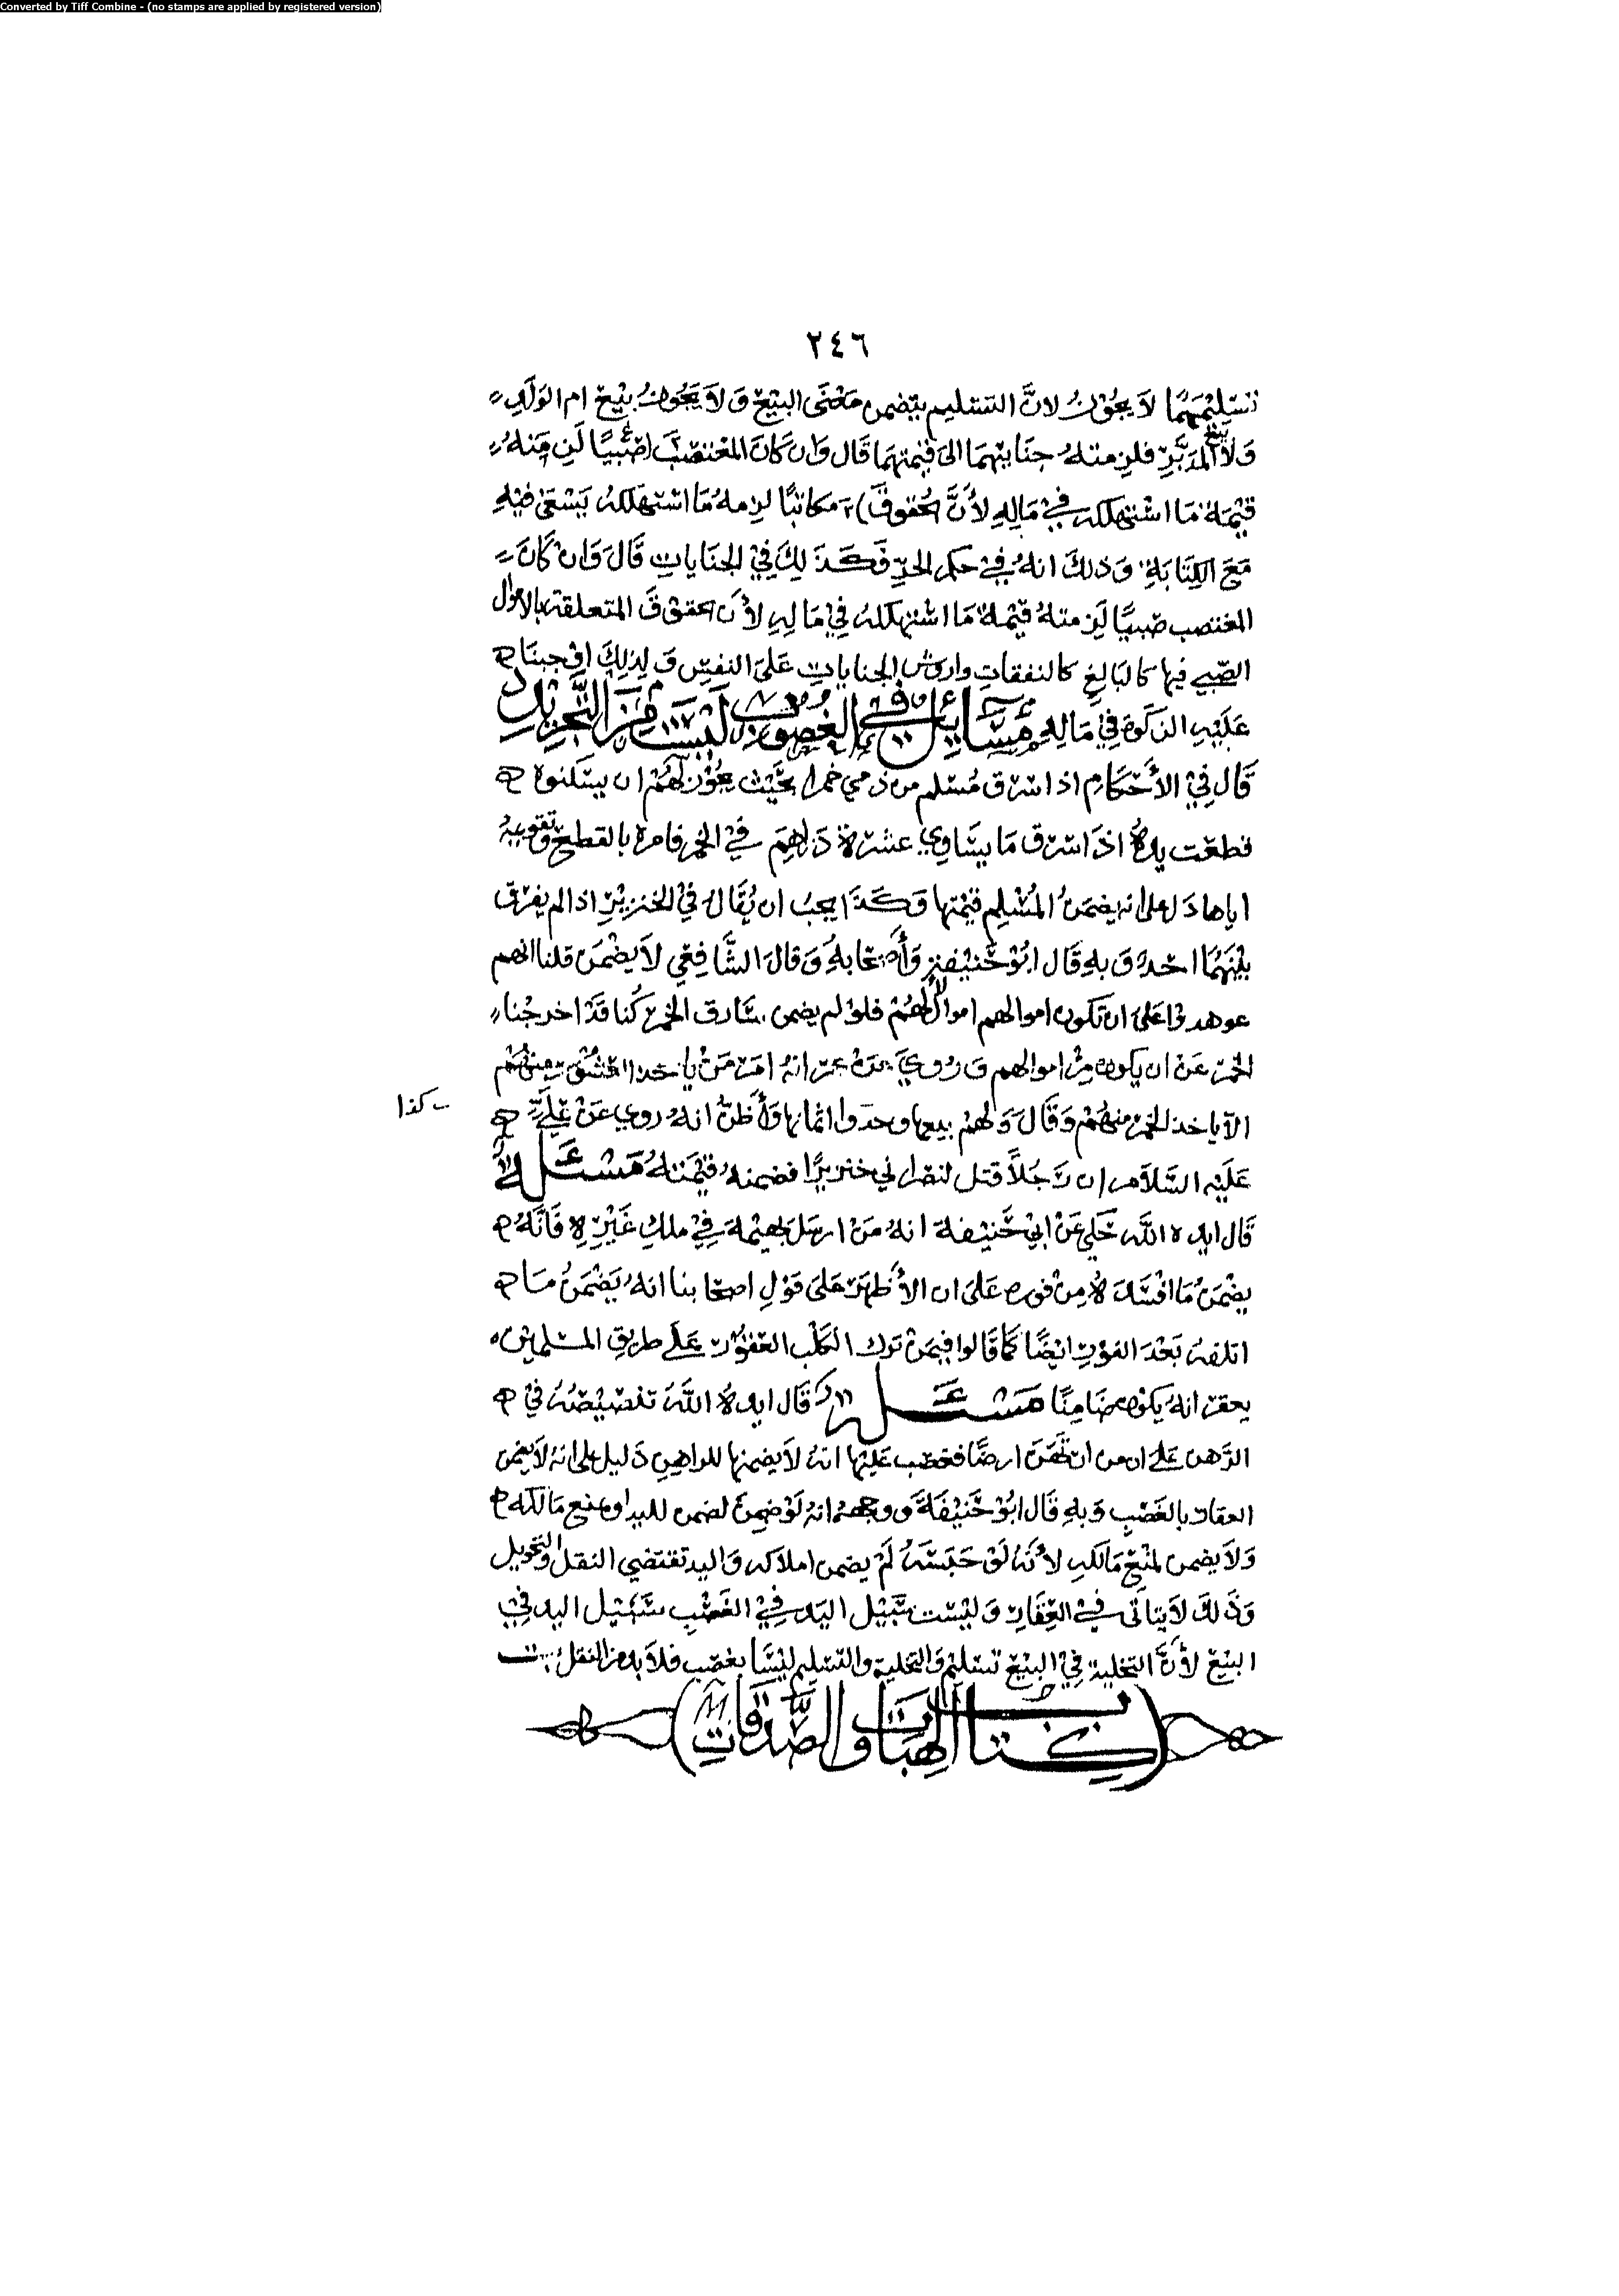 Converted by Tiff Combine - (no stamps are applied by registered version)
٢٤٦
تسليمهما لا يجوز لان التسليم يتضمن معنى البيع ولا يجوز بيع ام الولد
ولا بيع المدبر فلزمته جنايتهما الى قيمتهما قال وان كان المغتصب صبيًا لزمته
قيمة ما استهلكه في ماله لأن الحقوق مكاتبًا لزمه ما استهلكه يسعى فيه
مع الكتابة وذلك انه في حكم الحر فكذلك في الجنايات قال وان كان
المغتصب صبيًا لزمته قيمة ما استهلكه في ماله لأن الحقوق المتعلقة بالاموال
الصبي فيها كالبالغ كالنفقات واروش الجنايات على النفس ولذلك اوجبنا
عليه الزكوة في ماله مسايل في الغصوب ليست من التحرير
قال في الأحكام اذا سرق مسلم من ذمي خمرا بحيث يجوز لهم ان يسكنوه
قطعت يده اذا سرق ما يساوي عشرة دراهم في الخمر فامره بالقطع وتقويمه
اياها دل على انه يضمن المسلم قيمتها وكذا يجب ان يقال في الخنزير اذا لم يفرق
بينهما احد وبه قال ابو حنيفة وأصحابه وقال الشافعي لا يضمن قلنا انهم
عوهدوا على ان تكون اموالهم اموالا لهم فلو لم يضمن سارق الخمر كنا قد اخرجنا
الخمر عن ان يكون من اموالهم وروي عن عمر انه امر من يأخذ العشور منهم
الا ياخذ الخمر منهم وقال ولهم بيعها وخذوا اثمانها وأظن انه روي عن علي
كذا
عليه السلام ان رجلاً قتل لنصراني خنزيرًا فضمنه قيمته مسئلة
قال ايده الله حكي عن ابي حنيفة انه من ارسل بهيمة في ملك غيره فانه
يضمن ما افسده من فوره على ان الأظهر على قول اصحابنا انه يضمن ما
اتلفه بعد الفور ايضًا كما قالوا فيمن ترك الكلب العقور على طريق المسلمين
يعقر انه يكون ضامنًا مسئلة قال ايده الله تنصيصه في
الرهن على ان من ارتهن ارضًا فغصب عليها انه لا يضمنها للراهن دليل على انه لا يضمن
العقار بالغصب وبه قال ابو حنيفة ووجهه انه لو ضمن لضمن لليد او لمنع مالكه
ولا يضمن لمنع مالكه لأنه لو حبسه لم يضمن املاكه واليد تقتضي النقل والتحويل
وذلك لا يتاتى في العقار وليست سبيل اليد في الغصب سبيل اليد في
البيع لأن التخلية في البيع تسليم والتخلية والتسليم ليسا بغصب فلا بد من النقل
(كتاب الهبات والصدقات)